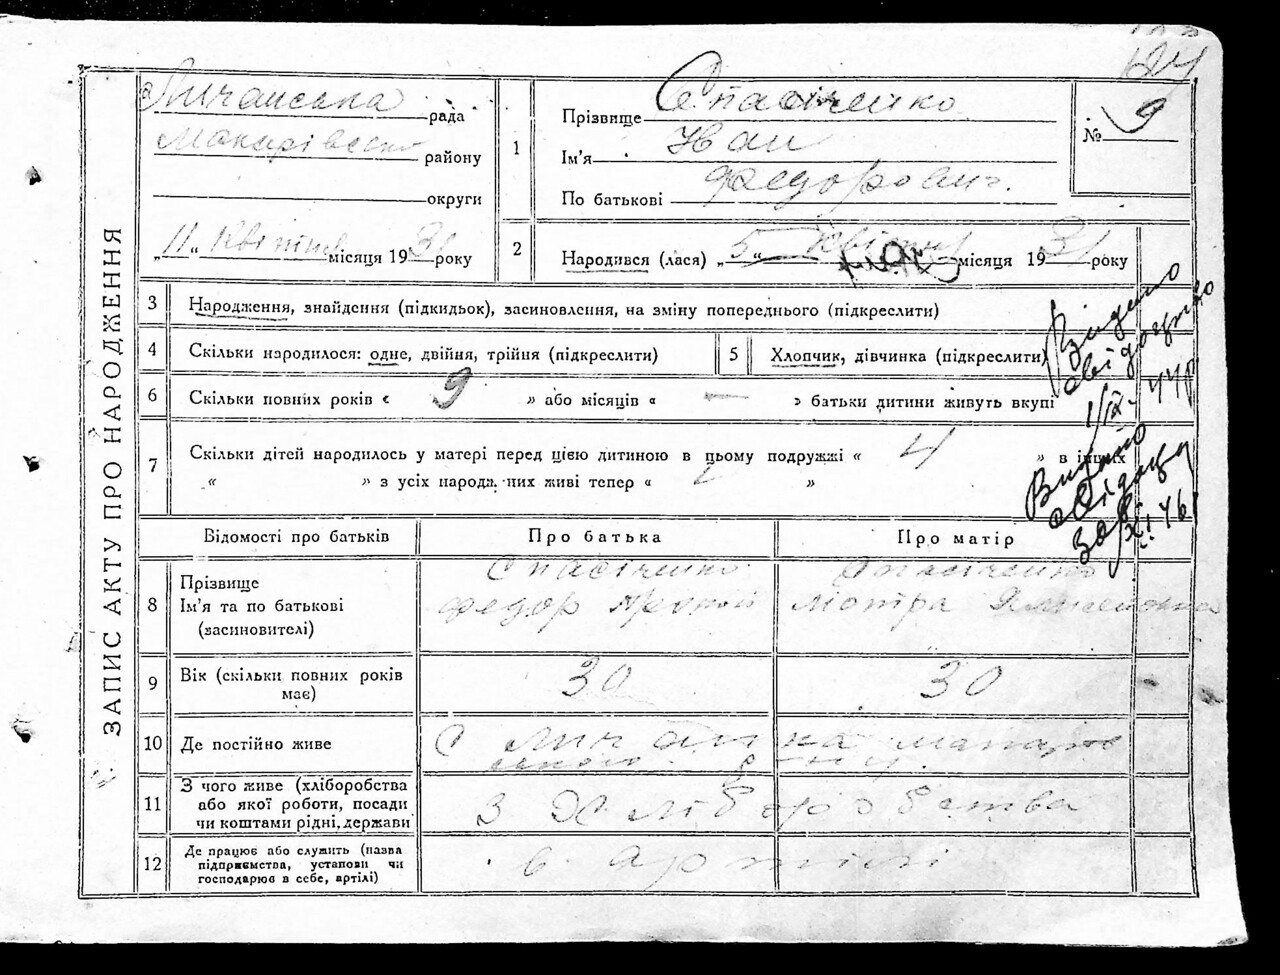 124
ЗАПИС АКТУ ПРО НАРОДЖЕННЯ
Личанська рада
Макарівськ району
округи
„11“ Квітня місяця 1931 року
1
Прізвище Спасіченко
Ім'я Іван
По батькові Федорович.
№ 9
2
Народився (лася) „5“ Квітня місяця 1931 року
3 Народження, знайдення (підкидьок), засиновлення, на зміну попереднього (підкреслити)
4 Скільки народилося: одне, двійня, трійня (підкреслити)
5 Хлопчик, дівчинка (підкреслити)
6 Скільки повних років « 9 » або місяців « — » батьки дитини живуть вкупі
7 Скільки дітей народилось у матері перед цією дитиною в цьому подружжі « 4 » в інших
« » з усіх народжених живі тепер « »
Видано
свідоцтво
1/IX-44р
Видано
XI 46
Відомості про батьків
Про батька
Про матір
8
Прізвище
Ім'я та по батькові
(засиновителі)
Спасіченко
Федор
Спасіченко
9 Вік (скільки повних років має)
30
30
10 Де постійно живе
с Личанка Макарів
ського р-ну
11 З чого живе (хліборобства
або якої роботи, посади
чи коштами рідні, держави
З Хліборобства
12 Де працює або служить (назва
підприємства, установи чи
господарює в себе, артілі)
в артілі